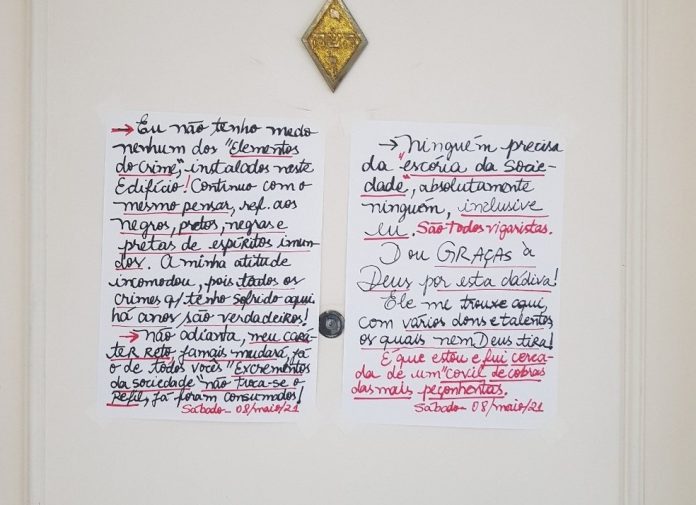 → Eu não tenho medo
nenhum dos "Elementos
do Crime", instalados neste
Edifício! Continuo com o
mesmo pensar, ref. aos
negros, pretos, negras e
pretas de espíritos imun-
dos. A minha atitude
incomodou, pois todos os
crimes q/ tenho sofrido aqui
há anos são verdadeiros!
→ Não adianta, meu cará-
ter RETO jamais mudará, já
o de todos vocês "Excrementos
da sociedade" não troca-se o
Refil, já foram consumados!
Sábado - 08/maio/21
→ Ninguém precisa
da "escória da Socie-
dade", absolutamente
ninguém, inclusive
eu. São todos vigaristas.
Dou GRAÇAS à
Deus por esta dádiva!
Ele me trouxe aqui,
com vários dons e talentos
os quais nem Deus tira!
É que estou e fui cerca-
da de um "covil de cobras
das mais peçonhentas.
Sábado - 08/maio/21